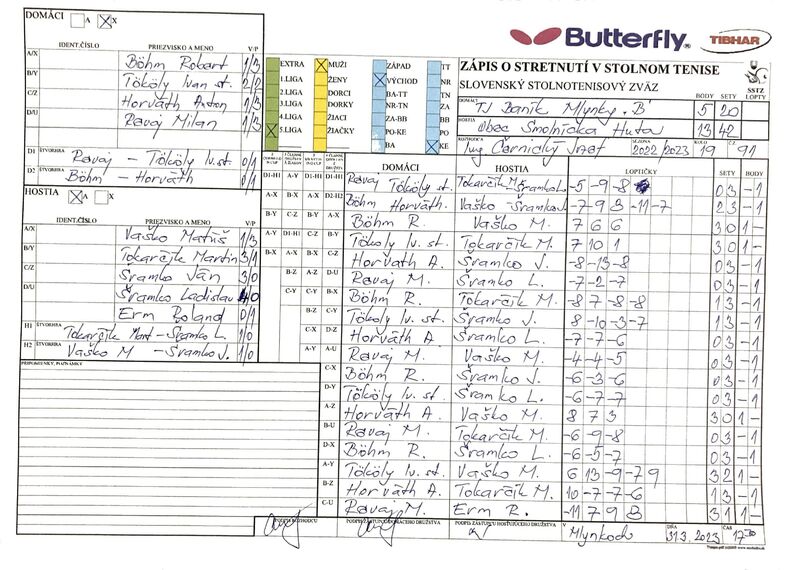 DOMÁCI A X
Butterfly® TIBHAR
IDENT.ČÍSLO PRIEZVISKO A MENO V/P
A/X Böhm Robert 1/3
B/Y Tököly Ivan st. 2/2
C/Z Horváth Anton 1/3
D/U Ravaj Milan 1/3
D1 ŠTVORHRA Ravaj - Tököly Iv. st. 0/1
D2 Böhm - Horváth 0/1
HOSTIA A X
IDENT.ČÍSLO PRIEZVISKO A MENO V/P
A/X Vaško Matúš 1/3
B/Y Tokarčík Martin 3/1
C/Z Šramko Ján 3/0
D/U Šramko Ladislav 4/0
Erm Roland 0/1
H1 ŠTVORHRA Tokarčík Mart - Šramko L. 1/0
H2 ŠTVORHRA Vaško M - Šramko J. 1/0
PRIPOMIENKY, NÁMIETKY
EXTRA MUŽI ZÁPAD TT
1.LIGA ŽENY VÝCHOD NR
2.LIGA DORCI BA-TT TN
3.LIGA DORKY NR-TN ZA
4.LIGA ŽIACI ZA-BB BB
5.LIGA ŽIAČKY PO-KE PO
BA KE
ZÁPIS O STRETNUTÍ V STOLNOM TENISE
SLOVENSKÝ STOLNOTENISOVÝ ZVÄZ
SSTZ
BODY SETY LOPTY
DOMÁCI TJ Baník Mlynky "B" 5 20
HOSTIA Obec Smolnícka Huta 13 42
ROZHODCA Ing Černický Jozef SEZÓNA 2022/2023 KOLO 19 Č. 91
DOMÁCI HOSTIA LOPTIČKY SETY BODY
D1-H1 A-Y D1-H1 D1-H1 Ravaj Tököly st. Tokarčík M. - Šramko L. -5 -9 -8 0 3 - 1
A-X B-X A-X D2-H2 Böhm Horváth Vaško - Šramko J. -7 9 3 -11 -7 2 3 - 1
B-Y C-Z B-Y A-X Böhm R. Vaško M. 7 6 6 3 0 1 -
A-Y D1-H1 C-Z B-Y Tököly Iv. st. Tokarčík M. 7 10 1 3 0 1 -
B-X A-X A-Y C-Z Horváth A. Šramko J. -8 -13 -8 0 3 - 1
B-Z A-Z D-U Ravaj M. Šramko L. -7 -2 -7 0 3 - 1
C-Y B-Y B-X Böhm R. Tokarčík M. -8 7 -8 -8 1 3 - 1
B-Z C-Y Tököly Iv. st. Šramko J. 8 -10 -3 -7 1 3 - 1
C-X D-Z Horváth A. Šramko L. -7 -7 -6 0 3 - 1
A-Y A-U Ravaj M. Vaško M. -4 -4 -5 0 3 - 1
C-X Böhm R. Šramko J. -6 -3 -6 0 3 - 1
D-Y Tököly Iv. st. Šramko L. -6 -7 -7 0 3 - 1
A-Z Horváth A. Vaško M. 8 7 3 3 0 1 -
B-U Ravaj M. Tokarčík M. -6 -9 -8 0 3 - 1
D-X Böhm R. Šramko L. -6 -5 -7 0 3 - 1
A-Y Tököly Iv. st. Vaško M. 6 13 -9 -7 9 3 2 1 -
B-Z Horváth A. Tokarčík M. 10 -7 -7 -6 1 3 - 1
C-U Ravaj M. Erm R. -11 7 9 8 3 1 1 -
PODPIS ROZHODCU PODPIS ZÁSTUPCU DOMÁCEHO DRUŽSTVA PODPIS ZÁSTUPCU HOSŤUJÚCEHO DRUŽSTVA V Mlynkoch DŇA 31.3.2023 ČAS 17:30